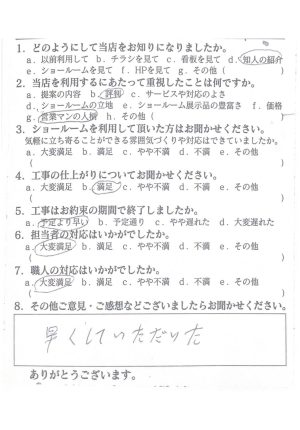 1. どのようにして当店をお知りになりましたか。
a. 以前利用して b. チラシを見て c. 看板を見て d. 知人の紹介
e. ショールームを見て f. HPを見て g. その他( )
2. 当店を利用するにあたって重視したことは何ですか。
a. 提案の内容 b. 評判 c. サービスや対応のよさ
d. ショールームの立地 e. ショールーム展示品の豊富さ f. 価格
g. 営業マンの人柄 h. その他( )
3. ショールームを利用して頂いた方はお聞かせください。
気軽に立ち寄ることができる雰囲気づくりや対応はできていましたか。
a. 大変満足 b. 満足 c. やや不満 d. 不満 e. その他
( )
4. 工事の仕上がりについてお聞かせください。
a. 大変満足 b. 満足 c. やや不満 d. 不満 e. その他
( )
5. 工事はお約束の期間で終了しましたか。
a. 予定より早い b. 予定通り c. やや遅れた d. 大変遅れた
6. 担当者の対応はいかがでしたか。
a. 大変満足 b. 満足 c. やや不満 d. 不満 e. その他
( )
7. 職人の対応はいかがでしたか。
a. 大変満足 b. 満足 c. やや不満 d. 不満 e. その他
( )
8. その他ご意見・ご感想などございましたらお聞かせください。
早くしていただいた
ありがとうございます。